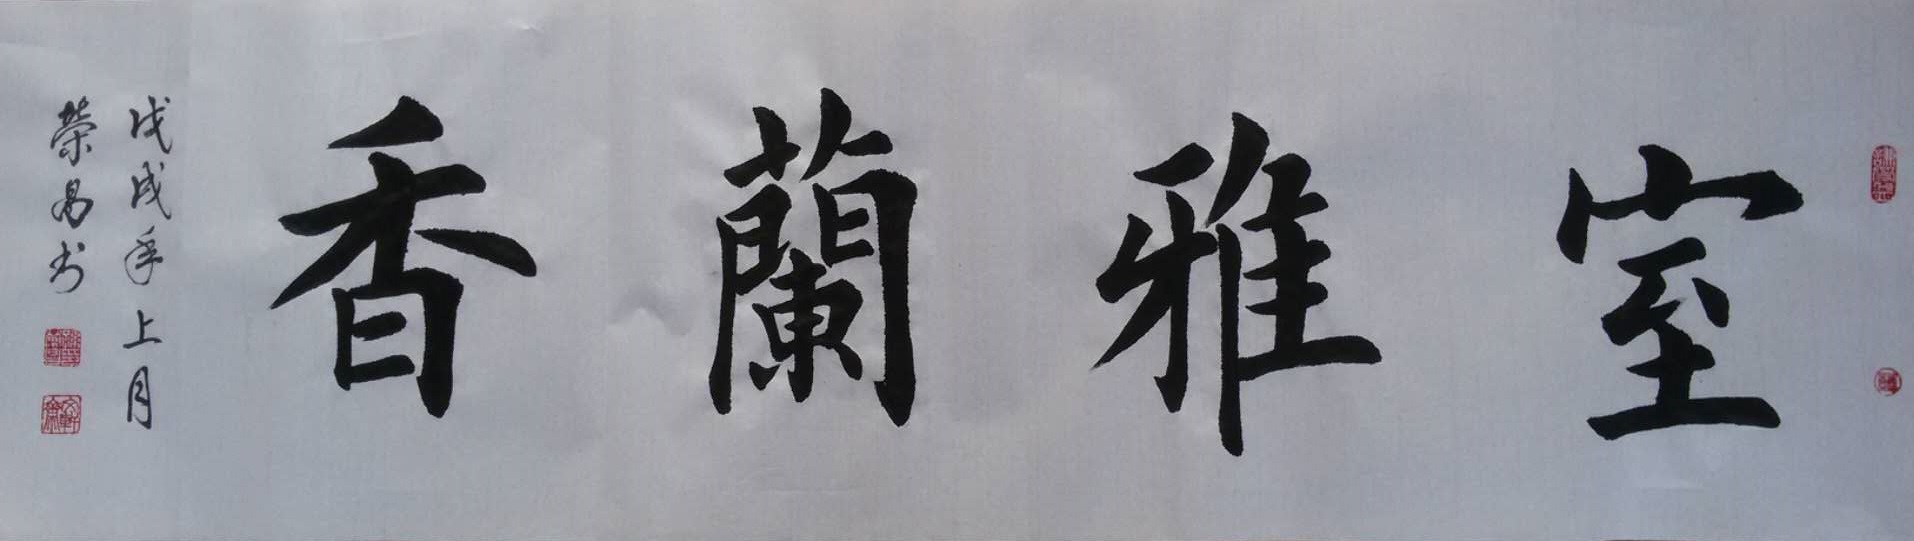 室雅蘭香
戊戌年上月
榮昌书